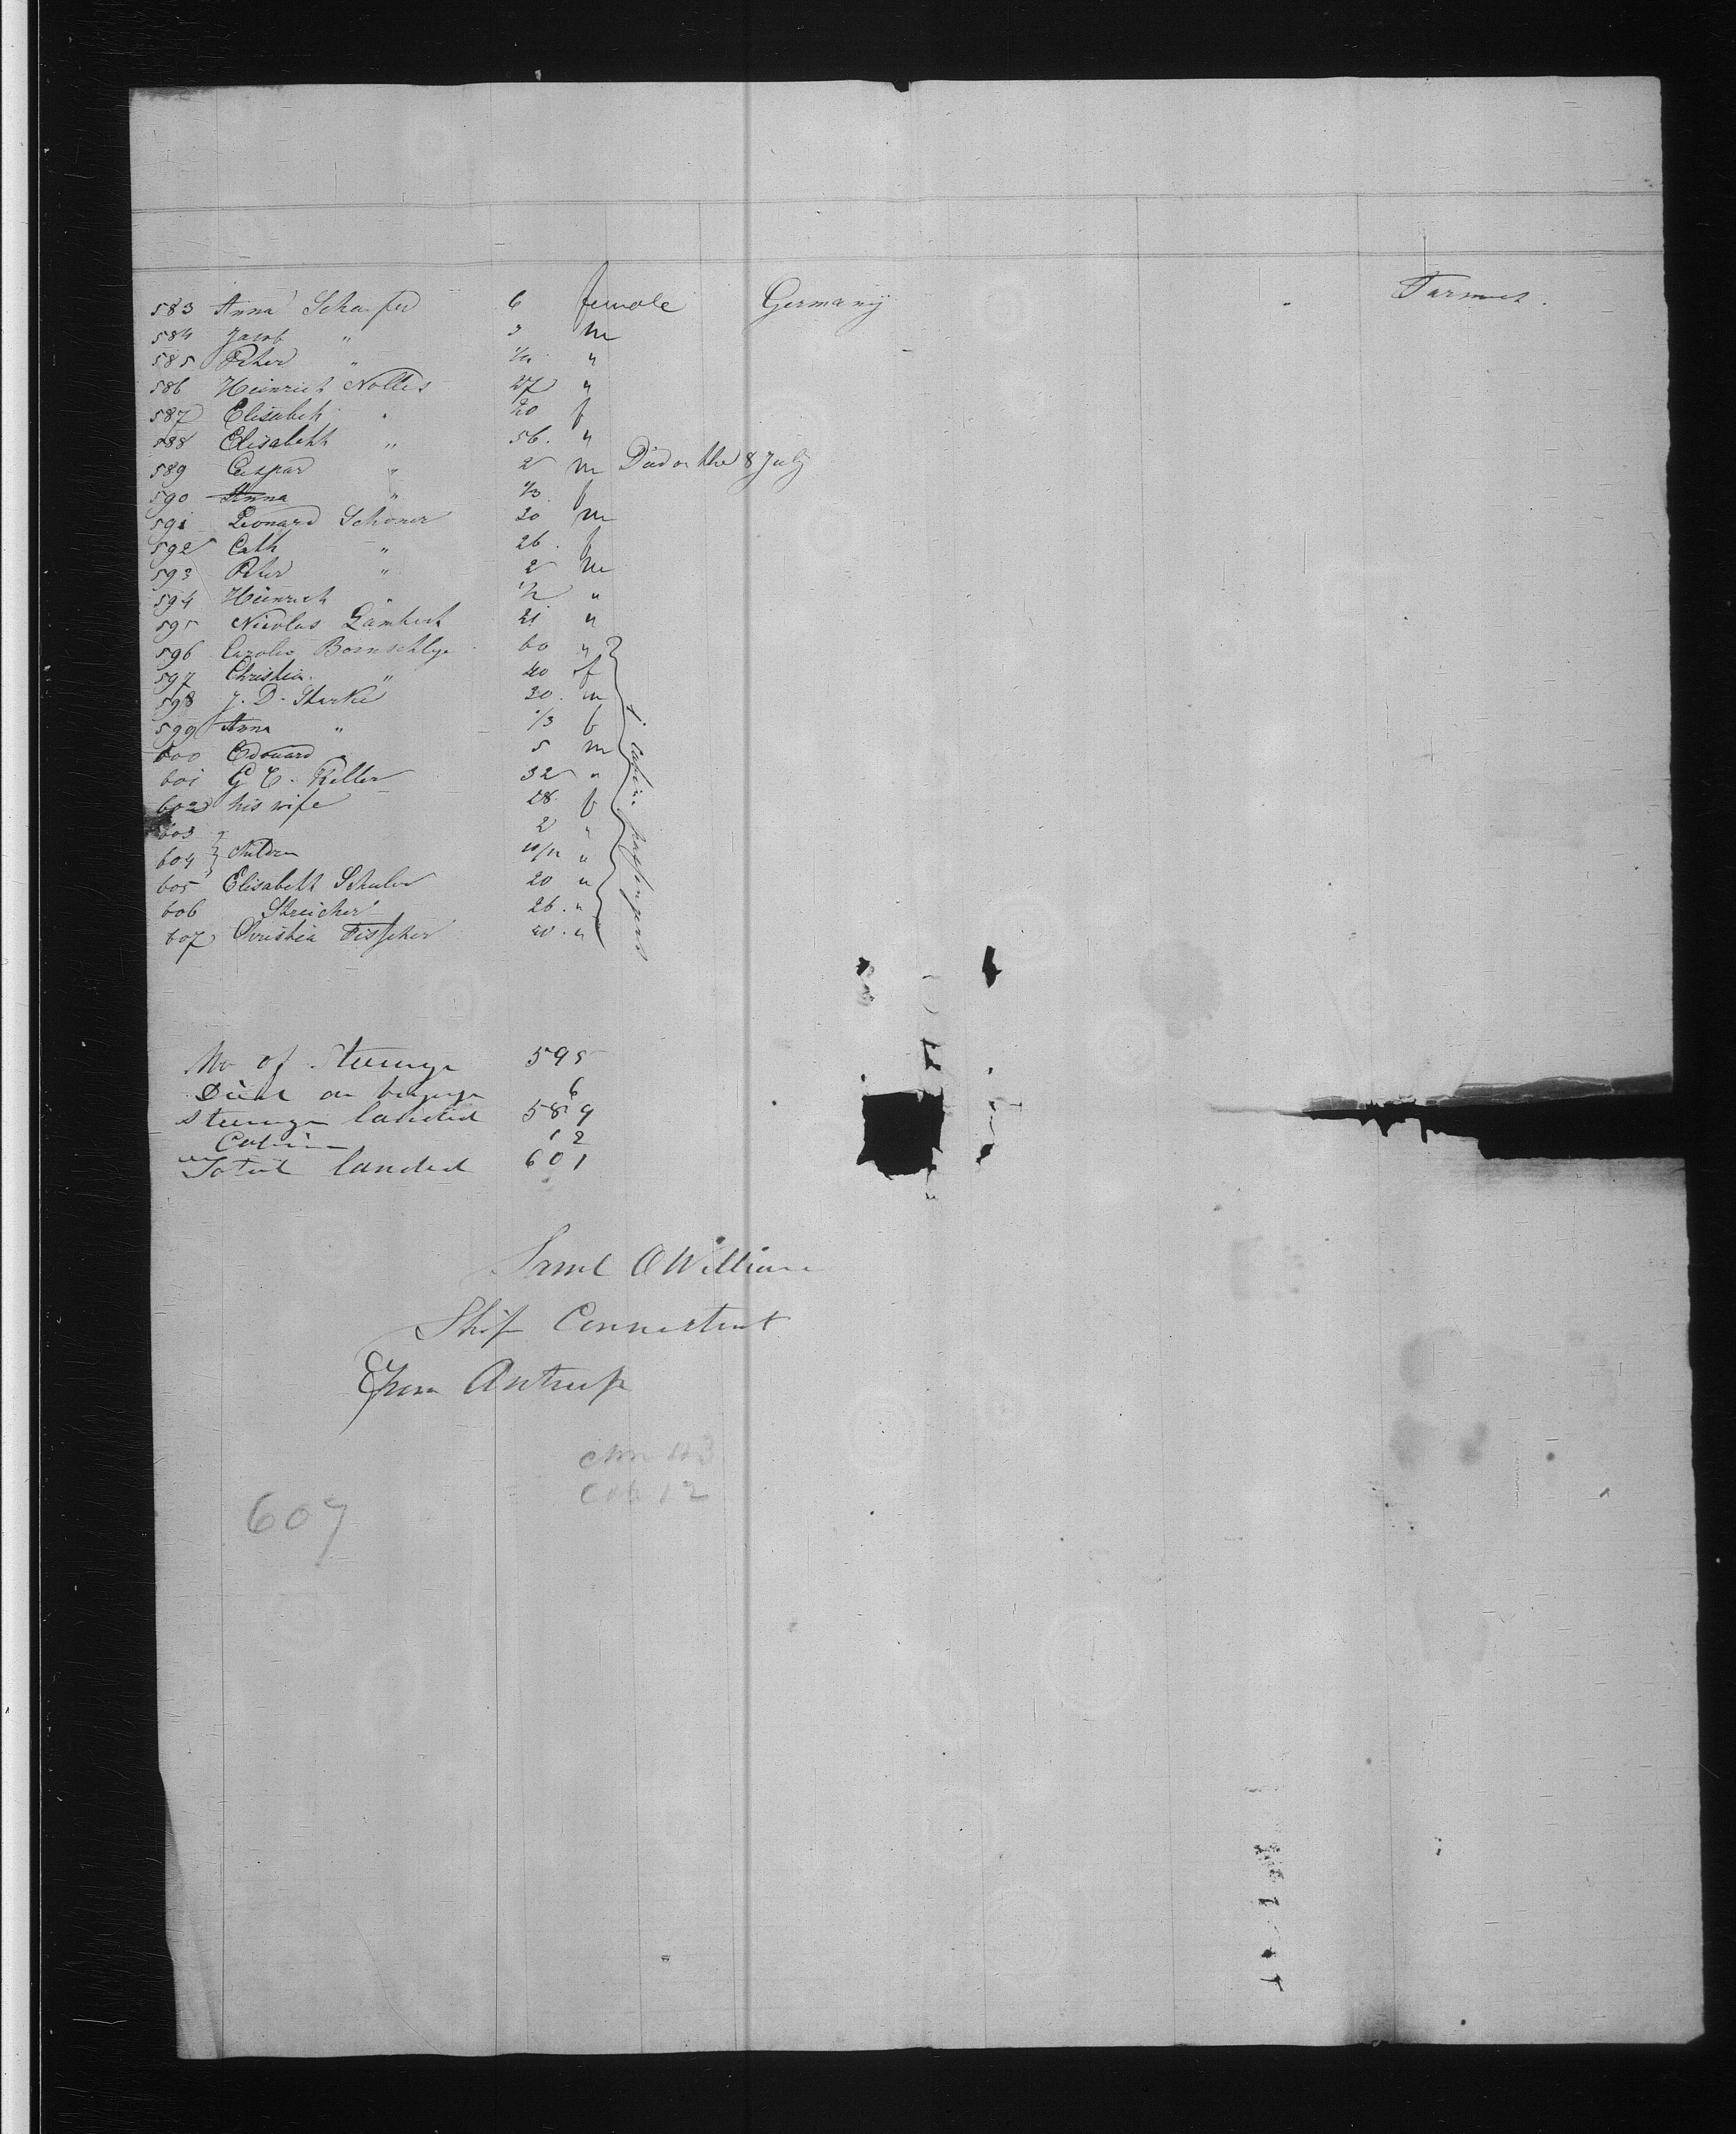 583 Anna Schaufer 6 female Germany Farmer.
584 Jacob " 3 m
585 Peter " "
586 Heinrich Nolles 27 "
587 Elisabeth " 20 f
588 Elisabeth " 56. "
589 Caspar " 2 m Died on the 8 July
590 Anna " 1/3 f
591 Leonard Schoner 30 m
592 Cath " 26. f
593 Peter " 2 m
594 Heinrich " 1/2 "
595 Nicolas Lambert 21 "
596 60 "
597 Christia. " 40 f
598 J. D. Starke 30. m
599 Anna " 1/3 f
600 Edouard " 5 m
601 G C. Keller 32 "
602 his wife 28 f
603 2 "
604 children 10/12 "
605 Elisabeth Schuler 20 "
606 Streicher 26. "
607 Christia Fisscher 40. "
cabin passengers
No of Steerage 595
Died on voyage 6
Steerage landed 589
Cabin 12
Total landed 601
Saml O William
Ship Connecticut
From Antwerp
Cab 12
607